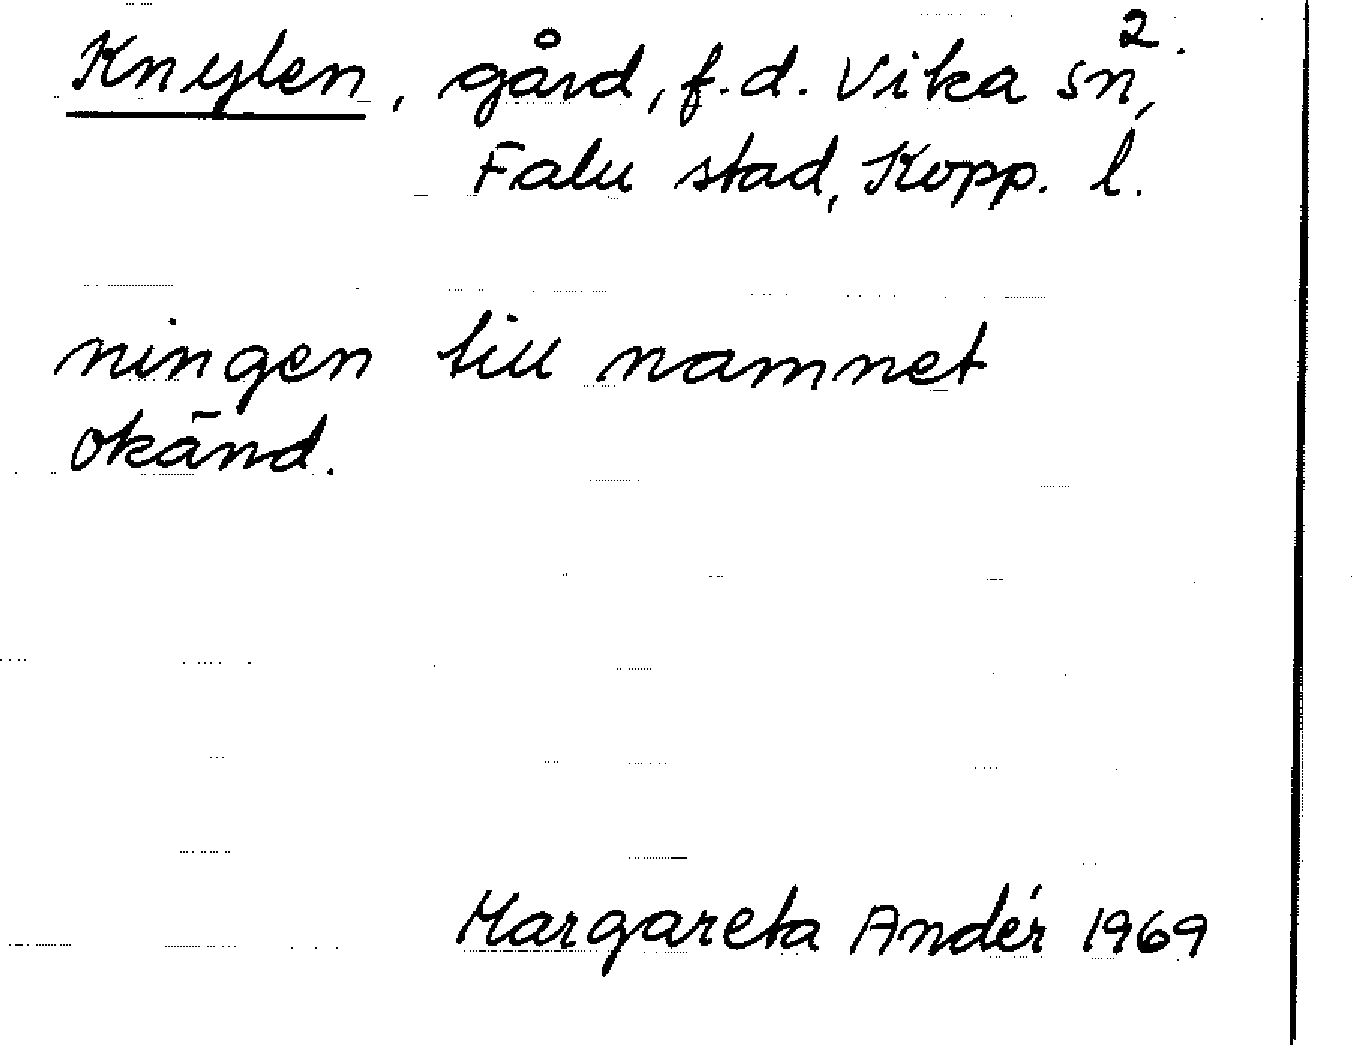 2.
Knylen, gård, f.d. Vika sn,
Falu stad, Kopp. l.
ningen till namnet
okänd.
Margareta Andér 1969